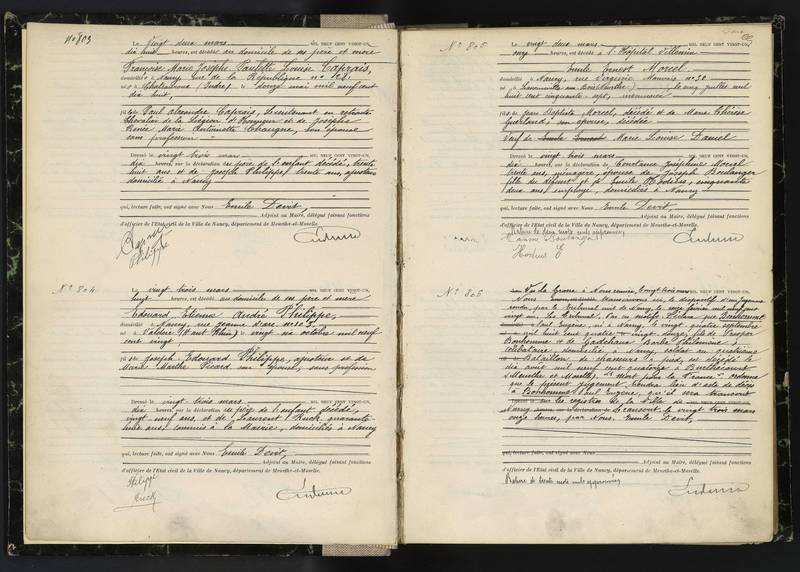 No 803
Le vingt deux mars MIL NEUF CENT VINGT-UN,
dix huit heures, est décédée au domicile de ses père et mère
Françoise Marie Josèphe Paulette Louise Caprais,
domiciliée à Nancy, rue de la République no
née à Châteauroux (Indre), le douze mai mil neuf cent
dix huit,
fille de Paul Alexandre Caprais, lieutenant en retraite
Chevalier de la Légion d'Honneur et de Josèphe
Renée Marie Antoinette son épouse
sans profession
Dressé le vingt trois mars MIL NEUF CENT VINGT-UN,
dix heures, sur la déclaration du père de l'enfant décédé, trente
huit ans, et de Joseph Philippe, trente ans, ajusteur
domiciliés à Nancy
qui, lecture faite, ont signé avec Nous Emile Devit,
Adjoint au Maire, délégué faisant fonctions
d'officier de l'Etat civil de la Ville de Nancy, département de Meurthe-et-Moselle.
Caprais
Philippe
No 804
Le vingt trois mars MIL NEUF CENT VINGT-UN,
vingt heures, est décédé au domicile de ses père et mère
Edouard Etienne André Philippe,
domicilié à Nancy, rue Jeanne d'arc no
né à Valdoie (Haut Rhin), le vingt six octobre mil neuf
cent vingt,
fils de Joseph Edouard Philippe, ajusteur et de
Marie Marthe Picard son épouse, sans profession
Dressé le vingt trois mars MIL NEUF CENT VINGT-UN,
dix heures, sur la déclaration du père de l'enfant décédé,
vingt neuf ans, et de Laurent Huck, quarante
ans, commis à la Mairie, domiciliés à Nancy
qui, lecture faite, ont signé avec Nous Emile Devit,
Adjoint au Maire, délégué faisant fonctions
d'officier de l'Etat civil de la Ville de Nancy, département de Meurthe-et-Moselle.
Philippe
Huck
No 805
Le vingt deux mars MIL NEUF CENT VINGT-UN,
onze heures, est décédé à l'Hôpital Villemin
Emile Ernest Morcel
domicilié à Nancy, rue Virginie Mauvais no 20
né à (Meurthe) le cinq juillet mil
huit cent cinquante sept, menuisier
fils de Jean Baptiste Morcel, décédé et de Marie Thérèse
son épouse, décédée
Veuf de Marie Louise Daniel
Dressé le vingt trois mars MIL NEUF CENT VINGT-UN,
dix heures, sur la déclaration de Constance Joséphine Morcel
trente ans, ménagère, épouse de Joseph Boulanger
fille du défunt et de Emile cinquante
deux ans, employé, domiciliés à Nancy
qui, lecture faite, ont signé avec Nous Emile Devit,
Adjoint au Maire, délégué faisant fonctions
d'officier de l'Etat civil de la Ville de Nancy, département de Meurthe-et-Moselle.
Rature de deux mots nuls approuvée,
Boulanger
No 806
MIL NEUF CENT VINGT-UN,
Nous transcrivons ici, le dispositif d'un jugement
rendu par le Tribunal civil de Nancy, le février mil neuf cent
vingt un. Le Tribunal, par ces motifs, Déclare que Bonhomme
Paul Eugène, né à Nancy, le vingt quatre septembre
mil huit cent quatre vingt douze, fils de Prosper
Bonhomme et de Barbe Philomène,
célibataire, domicilié à Nancy, soldat au quatrième
Bataillon de chasseurs à pied, est décédé le
dix août mil neuf cent quatorze à
(Meurthe et Moselle), "mort pour la France". Ordonne
que le présent jugement tiendra lieu d'acte de décès
à Bonhomme Paul Eugène, qu'il sera transcrit
sur les registres de la Ville de
Nancy. Transcrit le vingt trois mars
onze heures, par Nous, Emile Devit,
qui, lecture faite, ont signé avec Nous
Adjoint au Maire, délégué faisant fonctions
d'officier de l'Etat civil de la Ville de Nancy, département de Meurthe-et-Moselle.
Rature de trente mots nuls approuvée,